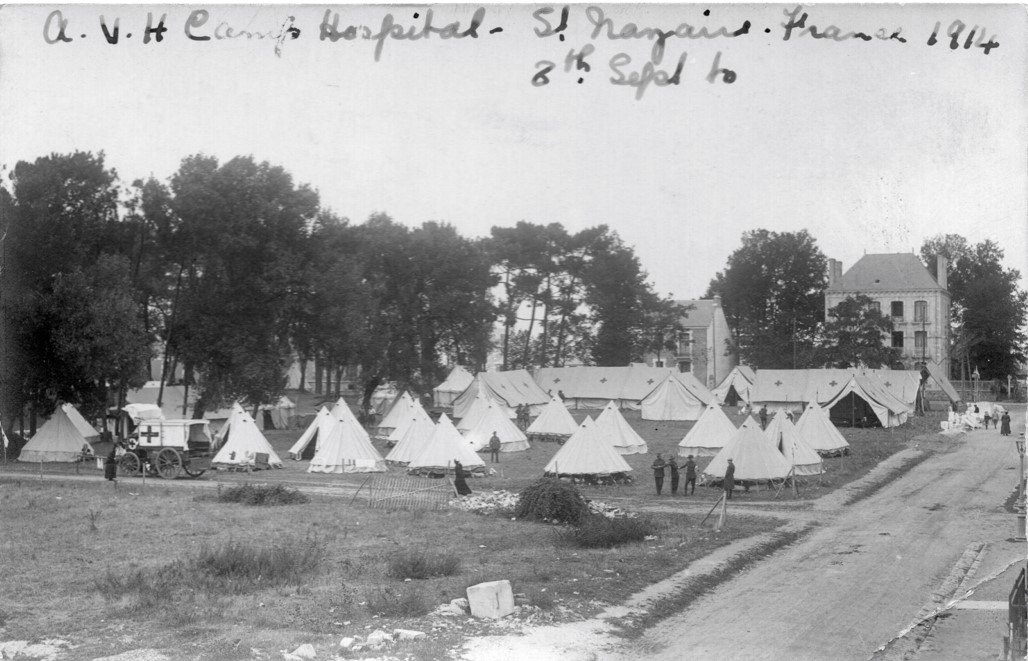 A. V. H Camp Hospital - St. Nazaire. France 1914
8th. Sept to